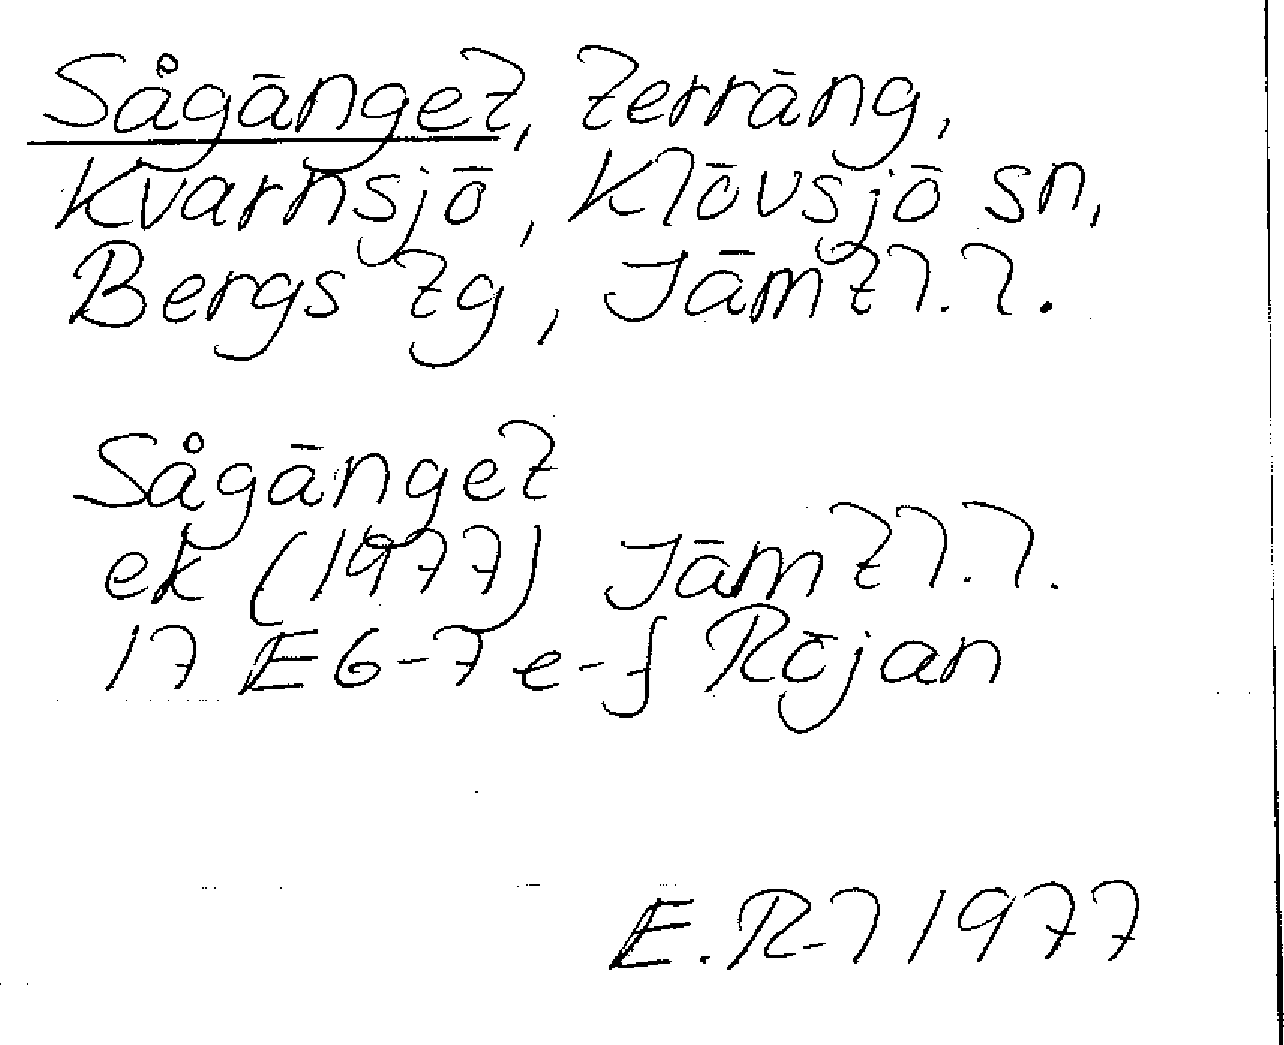 Sågänget, terräng,
Kvarnsjö, Klövsjö sn,
Bergs tg, Jämtl.l.
Sågänget
ek (1977) Jämtl.l.
17 E 6-7 e-f Röjan
E.R-l 1977